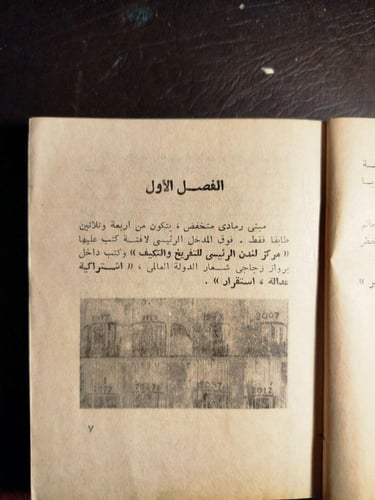 الفصل الأول
مبنى رمادى منخفض ، يتكون من اربعة وثلاثين
طابقا فقط . فوق المدخل الرئيسى لافتة كتب عليها
« مركز لندن الرئيسى للتفريخ والتكيف » وكتب داخل
برواز زجاجى شعار الدولة العالمى ، « اشتراكية
عدالة ، استقرار » .
2007
2007
2012
٧